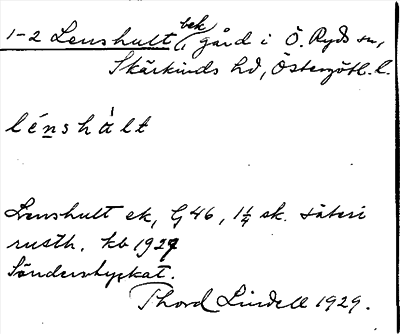 1-2 Lenshult bek, gård i Ö. Ryds sn,
Skärkinds hd, Östergötl. l.
lénshàlt
Lenshult ek, G 46, 1¼ sk. säteri
rusth. kb 1927
Sönderstyckat.
Thord Lindell 1929.